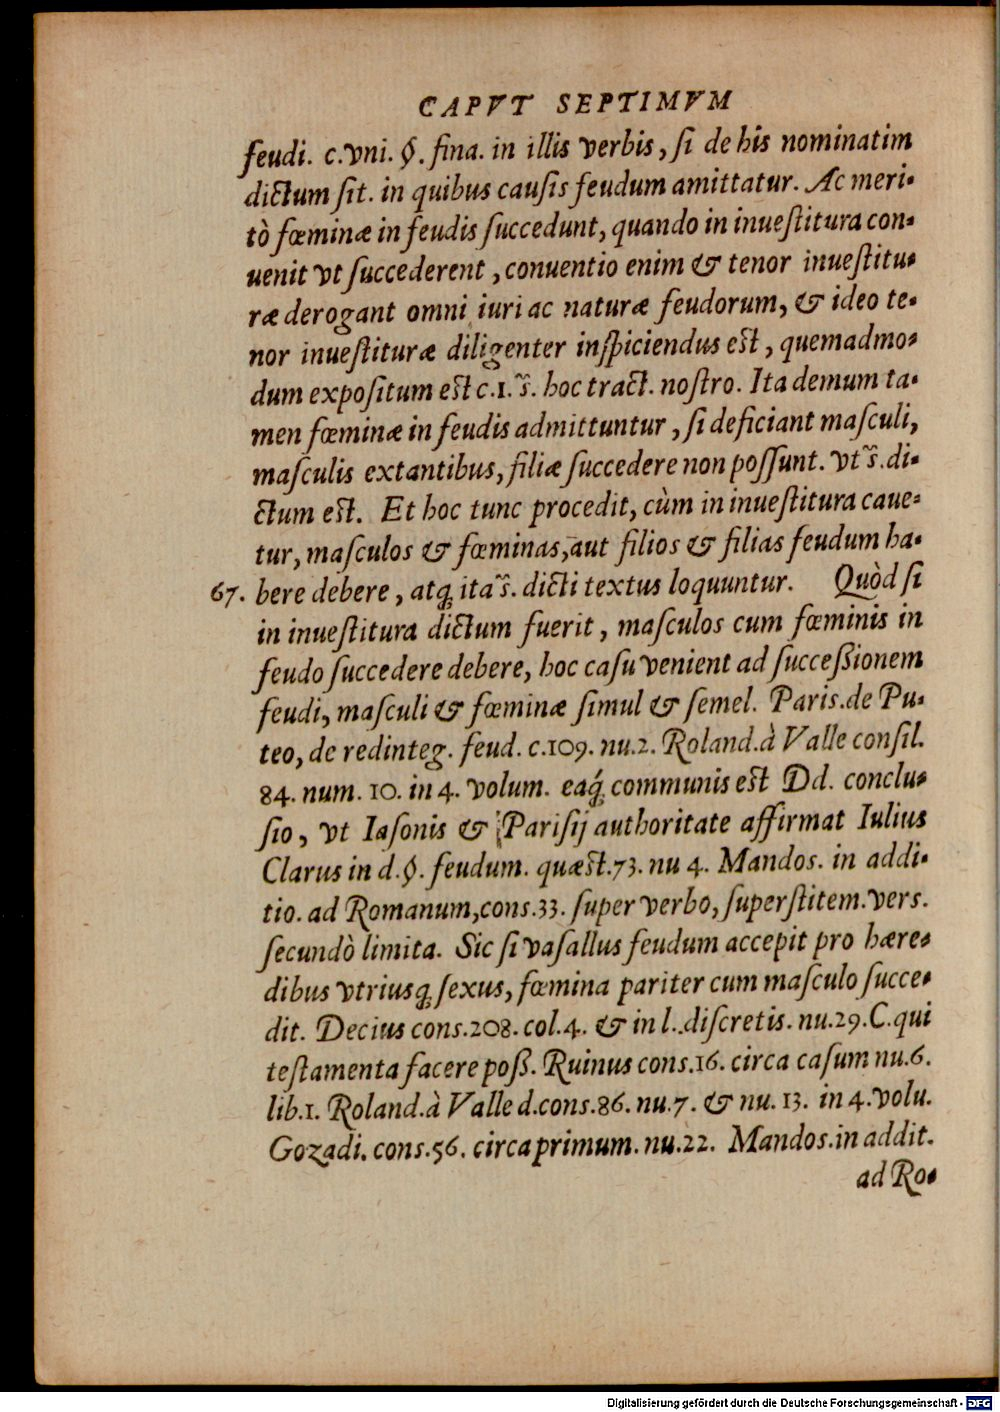 CAPVT SEPTIMVM
feudi. c. vni. §. fina. in illis verbis, ſi de his nominatim
dictum ſit. in quibus cauſis feudum amittatur. Ac meri-
tò fœminæ in feudis ſuccedunt, quando in inueſtitura con-
uenit vt ſuccederent, conuentio enim & tenor inueſtitu-
ræ derogant omni iuri ac naturæ feudorum, & ideo te-
nor inueſtituræ diligenter inſpiciendus eſt, quemadmo-
dum expoſitum eſt c.1. s̃. hoc tract. noſtro. Ita demum ta-
men fœminæ in feudis admittuntur, ſi deficiant maſculi,
maſculis extantibus, filiæ ſuccedere non poſſunt. vt s̃. di-
ctum eſt. Et hoc tunc procedit, cùm in inueſtitura caue-
tur, maſculos & fœminas, aut filios & filias feudum ha-
67. bere debere, atq; ita s̃. dicti textus loquuntur. Quòd ſi
in inueſtitura dictum fuerit, maſculos cum fœminis in
feudo ſuccedere debere, hoc caſu venient ad ſucceßionem
feudi, maſculi & fœminæ ſimul & ſemel. Paris. de Pu-
teo, de redinteg. feud. c.109. nu.2. Roland. à Valle conſil.
84. num. 10. in 4. volum. eaq́; communis eſt Dd. conclu-
ſio, vt Iaſonis & Pariſij authoritate affirmat Iulius
Clarus in d. §. feudum. quæſt.73. nu 4. Mandos. in addi-
tio. ad Romanum, cons.33. ſuper verbo, ſuperſtitem. verſ.
ſecundò limita. Sic ſi vaſallus feudum accepit pro hære-
dibus vtriusq; ſexus, fœmina pariter cum maſculo ſucce-
dit. Decius cons.208. col.4. & in l. diſcretis. nu.29. C. qui
teſtamenta facere poß. Ruinus cons.16. circa caſum nu.6.
lib.1. Roland. à Valle d. cons.86. nu.7. & nu. 13. in 4. volu.
Gozadi. cons.56. circa primum. nu.22. Mandos. in addit.
ad Ro-
Digitalisierung gefördert durch die Deutsche Forschungsgemeinschaft - DFG